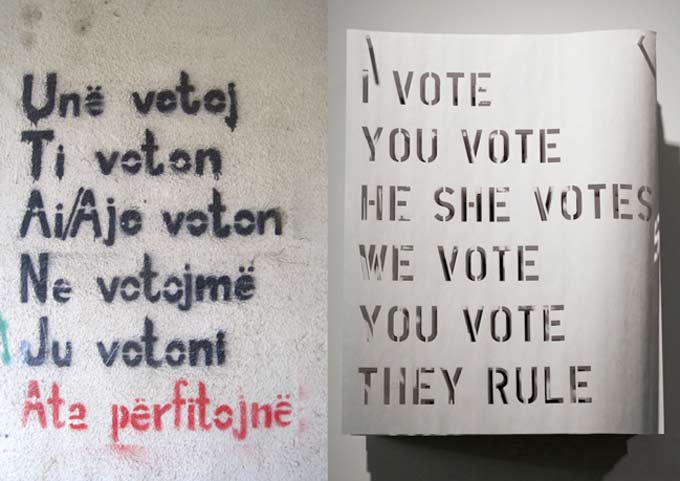 Unë votoj
Ti voton
Ai/Ajo voton
Ne votojmë
Ju votoni
Ata përfitojnë
I VOTE
YOU VOTE
HE SHE VOTES
WE VOTE
YOU VOTE
THEY RULE